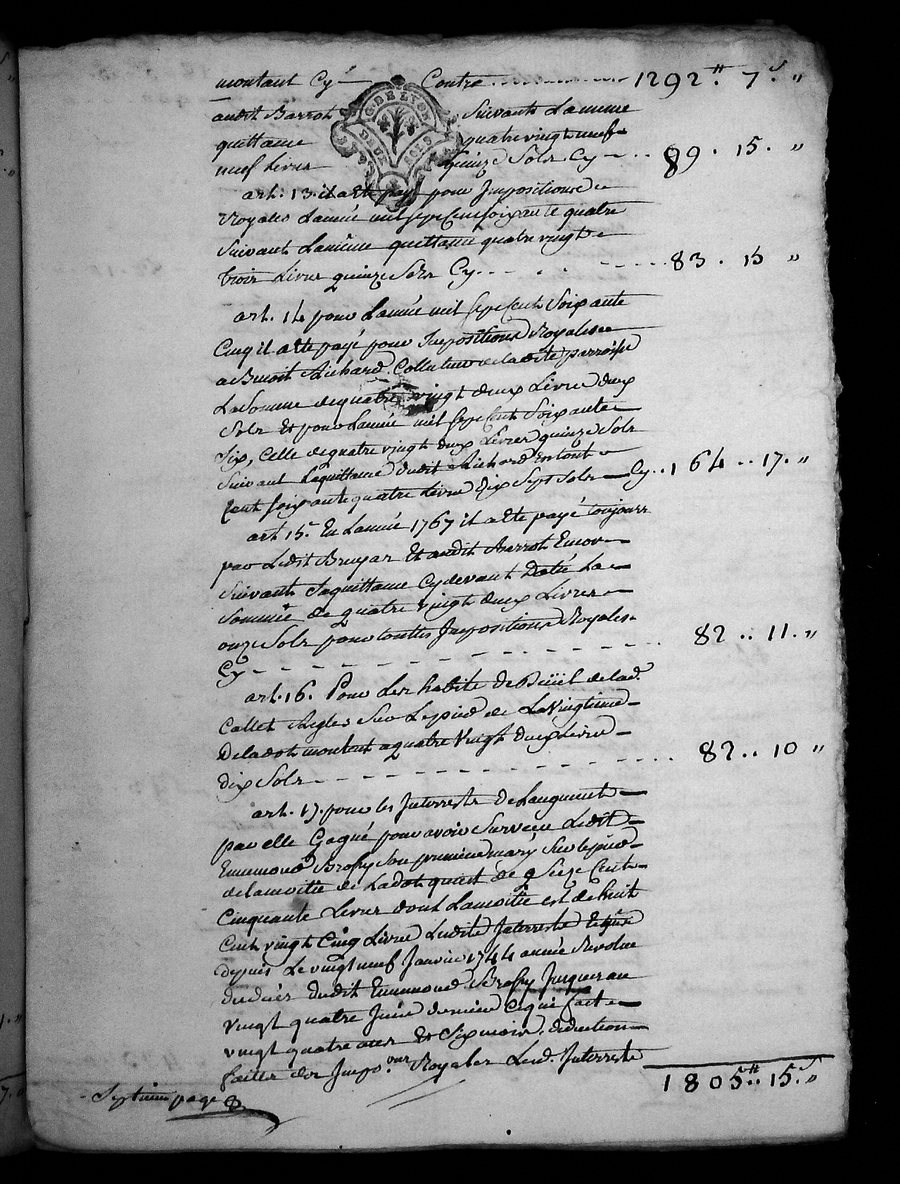 montant Cy Contre 1292# 7s "
audit Barrot Suivant Lameme
quittance quatre vingt neuf
neuf Livres quinze Sols Cy 89 . 15 . "
G. DE LYON
DEUX SOLS
art. 13. il a ete payé pour Impositions
Royales Lannée mil sept Cent soixante quatre
Suivant Lamême quittance quatre vingt
trois Livres quinze Sols Cy 83 . 15 "
art. 14 pour Lannée mil sept Cent Soixante
Cinq il a ete payé pour Impositions Royales
a Benoit Richard Collecteur de ladite parroisse
La Somme de quatre vingt deux Livres deux
Sols et pour Lannée mil sept Cent Soixante
Six, Celle de quatre vingt deux Livres quinze Sols
Suivant Lequittance dudit Richard en tout
Cent soixante quatre Livres dix Sept Sols Cy .. 164 .. 17 . "
art 15. En Lannée 1767 il a ete payé toujours
par Ledit Bruyar Et audit Barrot Encor
Suivant Saquittance Cydevant Datée La
Somme de quatre vingt deux Livres
onze Sols pour touttes Impositions Royales
Cy 82 .. 11 . "
art. 16. Pour Les habits de Düil de lad.
Callet Regles Sur Lepied de La Vingtieme
De la dot montent a quatre Vingt deux Livres
dix Sols 82 .. 10 "
art. 17. pour les Interrests de Laugment
par elle Gagné pour avoir Survecu Ledit
Emmond Brossy Son premier mary Sur lepied
de la moitie de La dot quiest de Seize Cent
Cinquante Livres dont La moitie est de huit
Cent vingt Cinq Livres Lesdits Interrests
depuis Le vingt neuf Janvier 1744 année Revolue
du décés dudit Emmond Brossy Jusques au
vingt quatre Juin dernier Cequi fait
vingt quatre ans Et Six mois, deduction
faites des Impo.ons Royales Lesd. Interrests
1805# 15s "
Septieme page